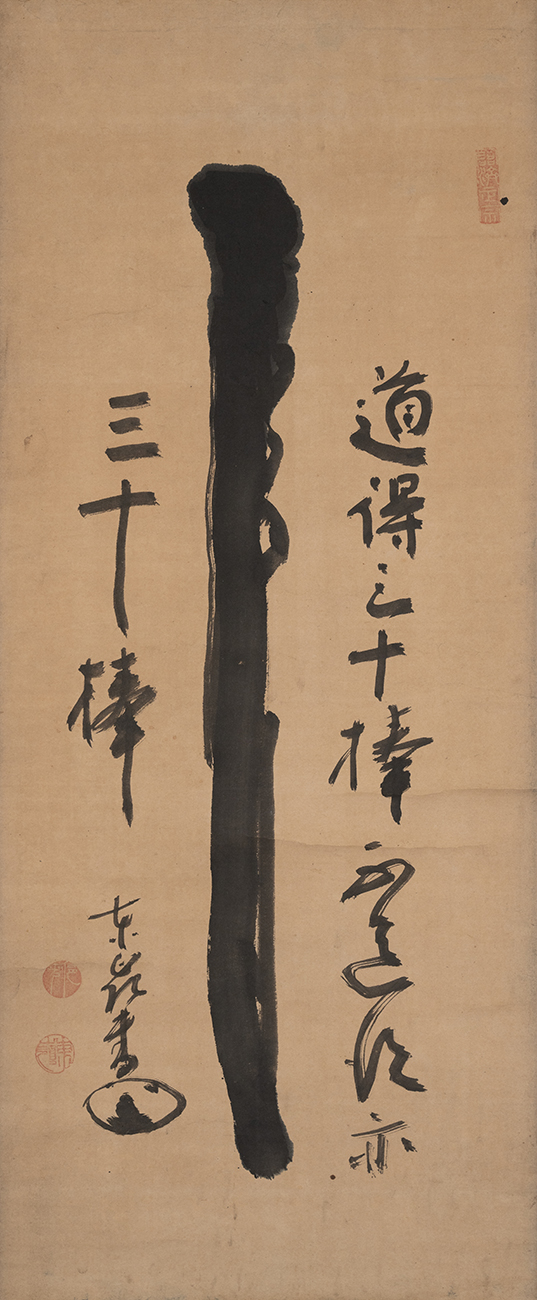 道得三十棒不道得亦
三十棒
東嶺書